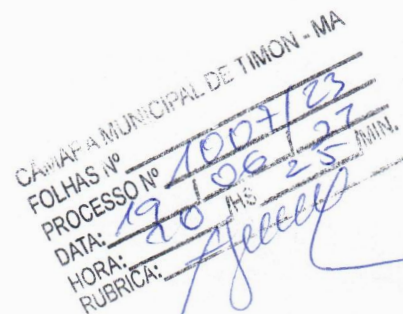 CÂMARA MUNICIPAL DE TIMON - MA
FOLHAS Nº
PROCESSO Nº 1007/23
DATA: 19 / 06 /
HORA: 20 /HS 25 /MIN.
RUBRICA: